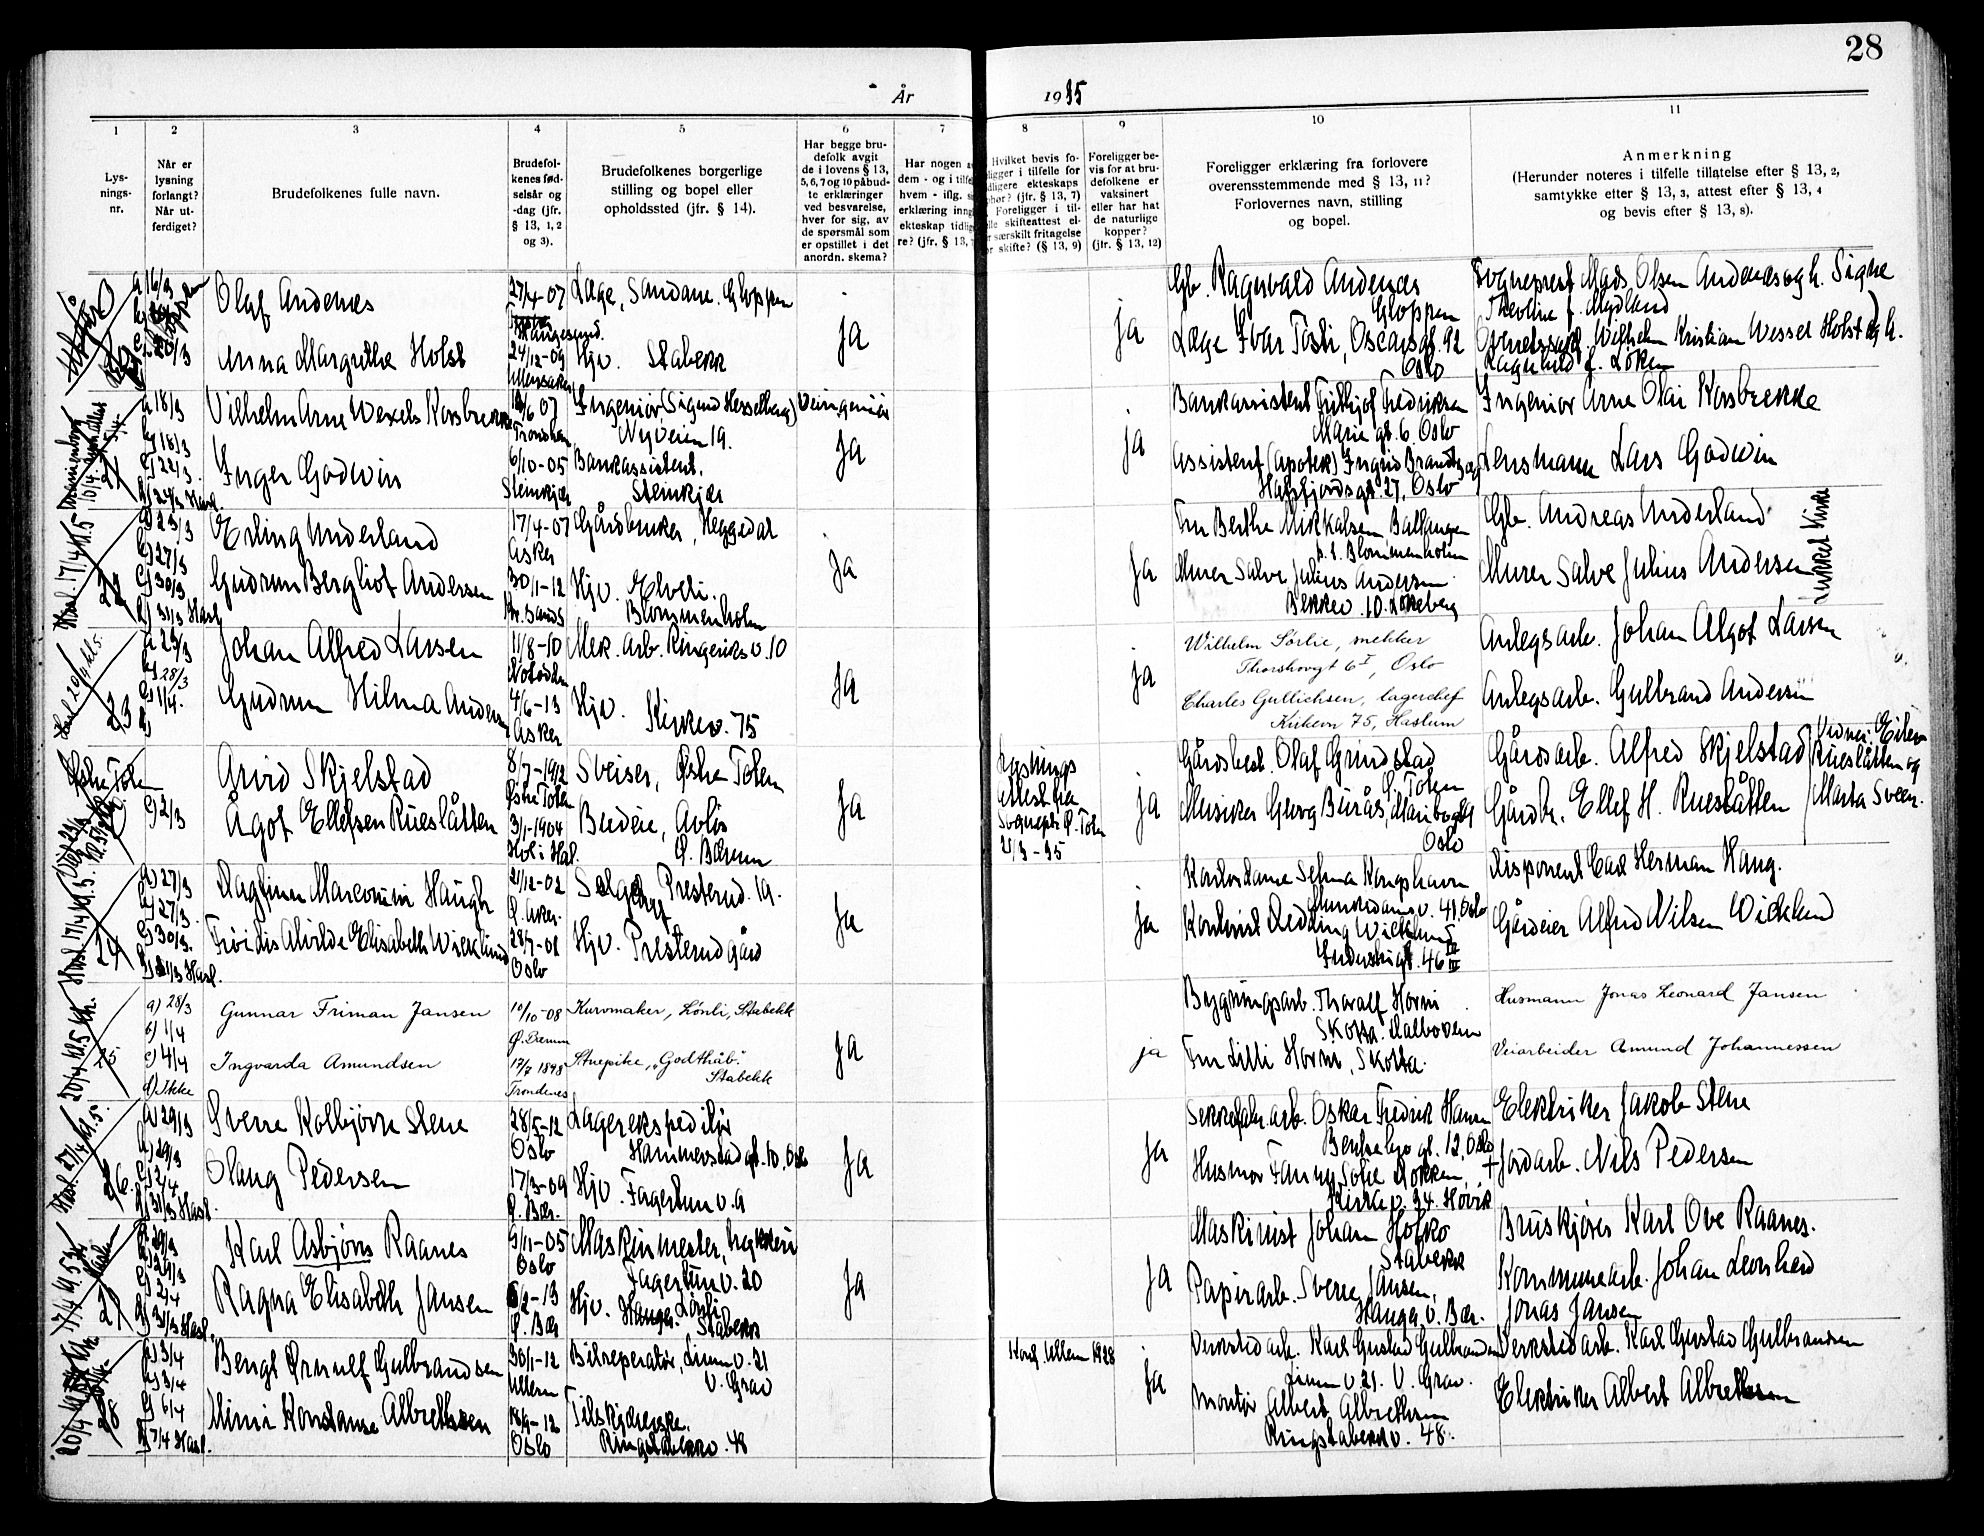 28
År 1935
1 2 3 4 5 6 7 8 9 10 11
Lys-
nings-
nr.
Når er
lysning
forlangt?
Når ut-
ferdiget?
Brudefolkenes fulle navn.
Brudefol-
kenes fød-
selsår og
-dag (jfr.
§ 13, 1, 2
og 3).
Brudefolkenes borgerlige
stilling og bopel eller
opholdssted (jfr. § 14).
Har begge bru-
defolk avgit
de i lovens § 13,
5, 6, 7 og 10 påbud-
te erklæringer
ved besvarelse,
hver for sig, av
de spørsmål som
er opstillet i det
anordn. skema?
Har nogen a
dem - og i tilfe
hvem - iflg. s
erklæring inng
ekteskap tidlig
re? (jfr. § 13,
Hvilket bevis fo-
ligger i tilfelle for
dligere ekteskaps
phør? (jfr. § 13, 7)
Foreligger i til-
lle skifteattest el-
r særskilt fritagelse
or skifte? (§ 13, 9)
Foreligger be-
vis for at bru-
defolkene er
vaksinert
eller har hat
de naturlige
kopper?
(jfr. § 13, 12)
Foreligger erklæring fra forlovere
overensstemmende med § 13, 11?
Forlovernes navn, stilling
og bopel.
Anmerkning
(Herunder noteres i tilfelle tillatelse efter § 13, 2,
samtykke efter § 13, 3, attest efter § 13, 4
og bevis efter § 13, 8).
a 16/3
20/3
Olaf Andenæs
27/4-07
Haugesund.
Læge, Sandane. Gloppen
Anna Margrethe Holst
24/12-09
Ullensaker
Hjv. Stabekk
Ja
ja
Gb. Ragnvald Andenæs
Gloppen
Læge Ivar Tosti, Oscarsgt. 92
Oslo
Sogneprest Mads Olsen Andenæs og h. Signe
Theoline f. Mydland
Overretssakf. Wilhelm Kristian Wessel Holst og h.
Ragnhild f. Løken
a 18/3
b) 18/3
c) 22/3
Vilhelm Arne Wexels Korsbrekke
6/07
Trondheim
Ingeniør (Sigurd Hesselberg) Veiingeniør
Nyveien 19.
Inger Godwin
6/10-05
Steinkjer
Bankassistent.
Steinkjer
Ja
ja
Bankassistent Fritjof Fredriksen
Marie gt. 6. Oslo
Assistent (apotek) Ingrid Brandtzæg
Hafrsfjordsgt. 27, Oslo
Ingeniør Arne Olai Korsbrekke
Lensmann Lars Godwin
Hasl. 17/4 kl. 5
22
a) 23/3
b) 27/3
c) 30/3
d) 31/3 Hasl.
Erling Underland
17/4-07
Asker
Gårdbruker, Heggedal
Gudrun Bergliot Andersen
30/1-12
Kr.sands
Hjv. Elveli.
Blommenholm
Ja
Ja
Fru Berthe Mikkalsen Ballangen
p.t. Blommenholm
Murer Salve Julius Andersen
Bekkev. 10. Løkeberg
Gb. Andreas Underland
Murer Salve Julius Andersen
23
b) 28/3
c) 1/4.
Johan Alfred Larsen
11/8-10
Notodden
Mek. Arb. Ringeriksv. 10
Gudrun Hilma Andersen
4/6-13
Asker
Hjv. Kirkev. 75
Ja
ja
Wilhelm Sørlie, mekker
Thorshovgt 6 I, Oslo
Charles Gullichsen, lagerchef
Kirkevn 75, Haslum
Anlegsarb. Johan Algot Larsen
Anlegsarb. Gulbrand Andersen
Østre Toten
c) 2/3
Arvid Skjelstad
8/7-1912
Østre Toten
Sveiser, Østre Toten
Ågot Ellefsen Rueslåtten
3/1-1904
Hol i Hal.
Budeie, Avløs
Ø. Bærum
Ja
Lysnings
attest fra
Sognepr. Ø. Toten
21/3-35
ja
Gårdsbest. Olaf Grindstad
Ø. Toten
Musiker Georg Burås, Maribogt
Oslo
Gårdsarb. Alfred Skjelstad
Gårdbr. Ellef H. Rueslåtten
Vidner: Eilev
Rueslåtten og
Marta Sveen.
Hasl. 17/4 kl. 5.
24
a) 27/3
b) 27/3.
c) 30/3.
d) 31/3 Hasl.
Dagfinn Marconini Haugh
21/12-02
Ø. Aker.
Selger Presterud. 19.
Frøidis Alvilde Elisabeth Wicklund
28/7-01
Oslo
Hjv. Presterud gård
Ja
Ja
Kontordame Selma Kongshavn
Munkedamsv. 41, Oslo
Kontorist Redding Wicklund
Industrigt. 46 III
Disponent Carl Herman Haug.
Gårdeier Alfred Nilsen Wicklund
25
a) 28/3
b) 1/4
c) 4/4
d) Ikke
Gunnar Friman Jansen
10/10-08
Ø. Bærum
Kurvmaker, Lönli, Stabekk
Ingvarda Amundsen
17/7 1898
Trondenes
Stuepike, "Godthåb".
Stabekk
Ja
ja
Bygningsarb. Thoralf Horni
Skotta. Dalbovein
Fru Lilli Horni, Skotta.
Husmann Jonas Leonard Jansen
Veiarbeider Amund Johannessen
Hasl. 27/4 kl. 5.
26.
a) 29/3
b) 29/3
c) 2/4
d) 31/3 Hasl.
Sverre Kolbjørn Stene
28/5-12
Oslo
Lagerekspeditør
Hammerstadgt. 10, Oslo
Olaug Pedersen
17/3-09
Ø. Bær.
Hjv. Fagertun v. 9
Ja
Ja
Oskar Fredrik Hansen
Bentsebrogt. 12, Oslo
Husmor Fanny Sofie Dokken,
Kirkev. 34 Høvik
Elektriker Jakob Stene
+ Jordarb. Nils Pedersen
17/4 kl. 53
27
a) 29/3
b) 29/3
c) 2/4
d) 31/3 Hasl.
Karl Asbjørn Raanes
5/11-05
Oslo
Maskinmester, trykkeri
Fagertun v. 20
Ragna Elisabeth Jansen
6/2-13
Ø. Bær
Hjv. Hauger. Lönli
Stabekk
Ja
Ja
Maskinist Johan Hofko
Stabekk
Papirarb. Sverre Jansen,
Hauger. V. Bær.
Bruskjører Karl Ove Raanes.
Kommunearb. Johan Leonhard
Jonas Jansen
28
a) 3/4
b) 3/4
c) 6/4
d) 7/4 Hasl.
Bengt Ørnulf Gulbrandsen
30/1-12
Ullern
Bilreparatør, Lium v. 21
V. Grav
Mimi Konstanse Albrethsen
18/9-12
Oslo
Tilskjærerske.
Ringstabekkv. 48
Konf. Ullern 1928
ja
Verkstedarb. Karl Gustad Gulbrandsen
Lium v. 21. V. Grav.
Montør Albert Albrethsen
Ringstabekkv. 48.
Verkstedarb. Karl Gustad Gulbrandsen
Elektriker Albert Albrethsen